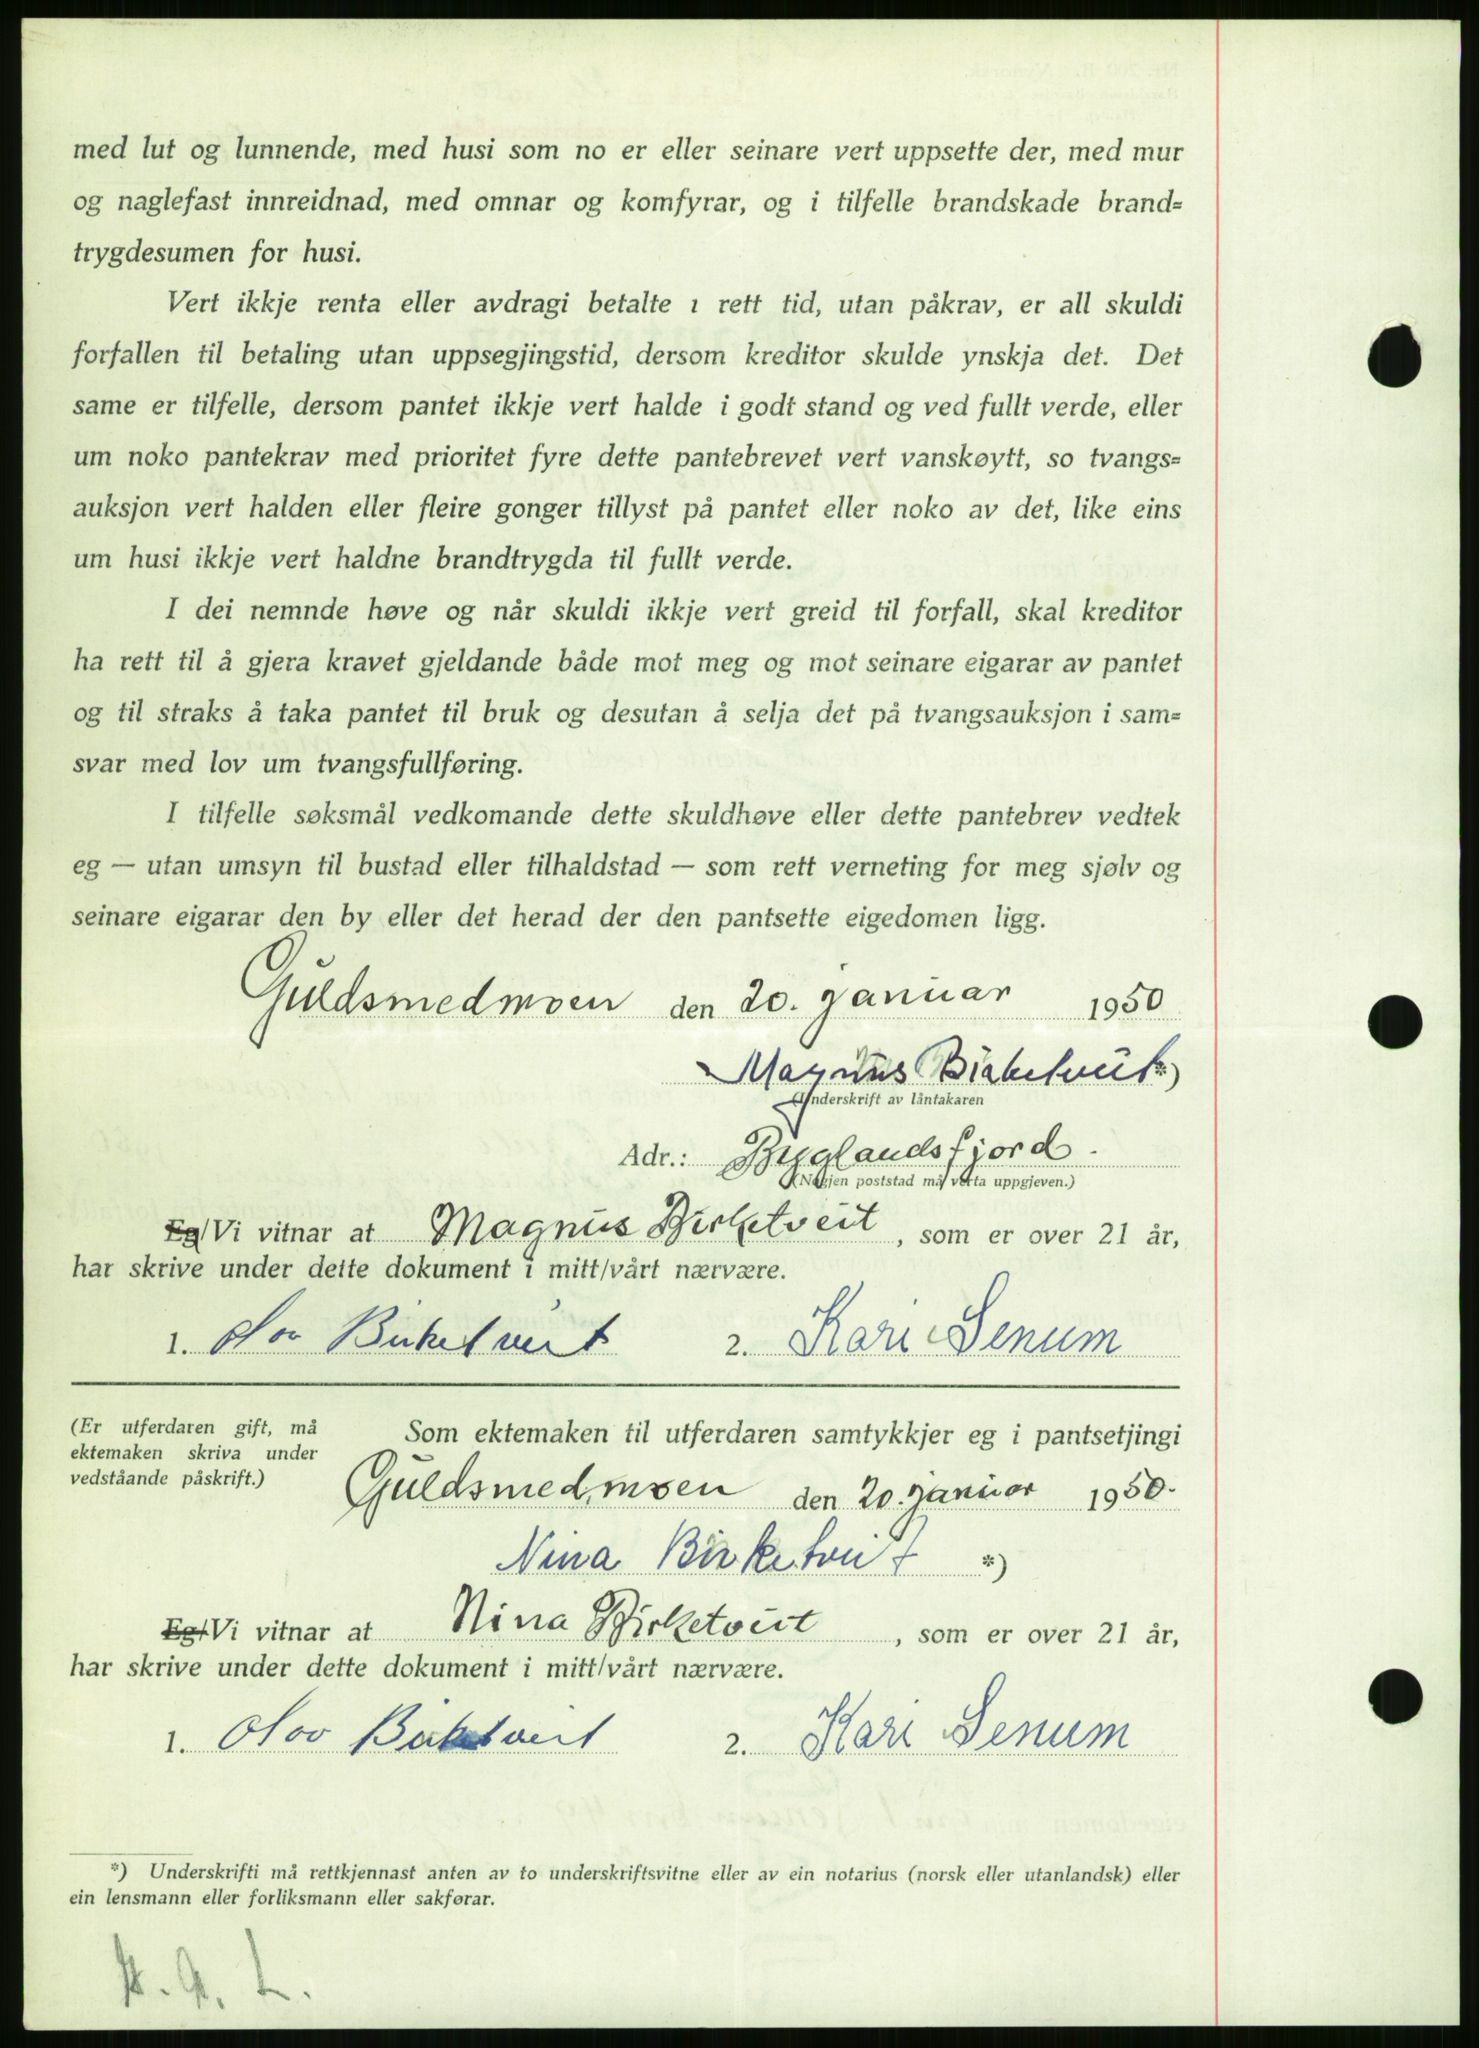 med lut og lunnende, med husi som no er eller seinare vert uppsette der, med mur
og naglefast innreidnad, med omnar og komfyrar, og i tilfelle brandskade brand=
trygdesumen for husi.
Vert ikkje renta eller avdragi betalte i rett tid, utan påkrav, er all skuldi
forfallen til betaling utan uppsegjingstid, dersom kreditor skulde ynskja det. Det
same er tilfelle, dersom pantet ikkje vert halde i godt stand og ved fullt verde, eller
um noko pantekrav med prioritet fyre dette pantebrevet vert vanskøytt, so tvangs=
auksjon vert halden eller fleire gonger tillyst på pantet eller noko av det, like eins
um husi ikkje vert haldne brandtrygda til fullt verde.
I dei nemnde høve og når skuldi ikkje vert greid til forfall, skal kreditor
ha rett til å gjera kravet gjeldande både mot meg og mot seinare eigarar av pantet
og til straks å taka pantet til bruk og desutan å selja det på tvangsauksjon i sam=
svar med lov um tvangsfullføring.
I tilfelle søksmål vedkomande dette skuldhøve eller dette pantebrev vedtek
eg — utan umsyn til bustad eller tilhaldstad — som rett verneting for meg sjølv og
seinare eigarar den by eller det herad der den pantsette eigedomen ligg.
Guldsmedmoen den 20. januar 1950
Magnus Birketveit *)
(Underskrift av låntakaren
Adr.: Byglandsfjord.
(Nøgjen poststad må verta uppgjeven.)
Eg/Vi vitnar at Magnus Birketveit, som er over 21 år,
har skrive under dette dokument i mitt/vårt nærvære.
1. Olov Birketveit 2. Kari Senum
(Er utferdaren gift, må
ektemaken skriva under
vedståande påskrift.)
Som ektemaken til utferdaren samtykkjer eg i pantsetjingi
Guldsmedmoen den 20. januar 1950.
Nina Birketveit *)
Eg/Vi vitnar at Nina Birketveit, som er over 21 år,
har skrive under dette dokument i mitt/vårt nærvære.
1. Olov Birketveit 2. Kari Senum
*) Underskrifti må rettkjennast anten av to underskriftsvitne eller av ein notarius (norsk eller utanlandsk) eller
ein lensmann eller forliksmann eller sakførar.